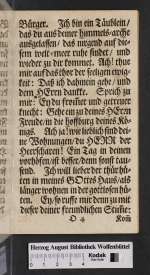 Bürger. Ich bin ein Täublein/
das du aus deiner himmels-arche
ausgelassen/ das nirgend auf die-
sem welt-meer ruhe findet/ und
wieder zu dir kommet. Ach! thue
mir auf das thor der seeligen ewig-
keit: Daß ich dahinein gehe/ und
dem HErrn dancke. Sprich zu
mir: Ey du frommer und getreuer
knecht: Gehe ein zu deines HErrn
Freude/ in die hoffburg deines Kö-
nigs. Ach ja! wie lieblich sind dei-
ne Wohnungen/ du HERR der
Heerscharen! Ein Tag in deinen
vorhöfen/ist besser/denn sonst tau-
send. Ich will lieber der thür hü-
ten in meines GOttes Haus/als
länger wohnen in der gottlosen hüt-
ten. Ey/so ruffe mir denn zu mit
dieser deiner freundlichen Stimme:
Kom
Herzog August Bibliothek Wolfenbüttel